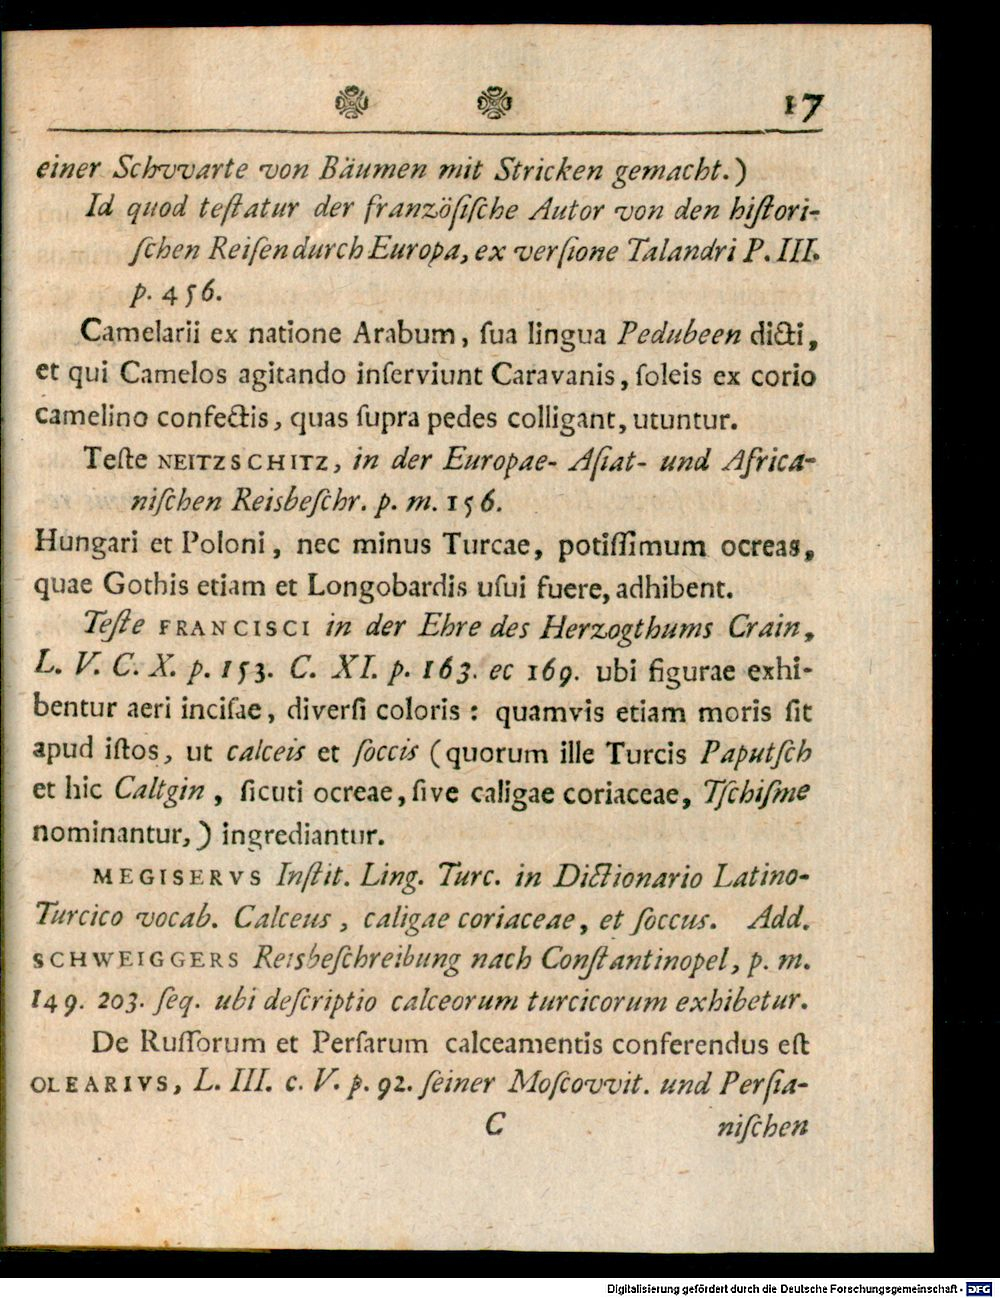 17
einer Schvvarte von Bäumen mit Stricken gemacht.)
Id quod teſtatur der franzöſiſche Autor von den hiſtori-
ſchen Reiſen durch Europa, ex verſione Talandri P. III.
p. 456.
Camelarii ex natione Arabum, ſua lingua Pedubeen dicti,
et qui Camelos agitando inſerviunt Caravanis, ſoleis ex corio
camelino confectis, quas ſupra pedes colligant, utuntur.
Teſte NEITZSCHITZ, in der Europae- Aſiat- und Africa-
niſchen Reisbeſchr. p. m. 156.
Hungari et Poloni, nec minus Turcae, potiſſimum ocreas,
quae Gothis etiam et Longobardis uſui fuere, adhibent.
Teſte FRANCISCI in der Ehre des Herzogthums Crain,
L. V. C. X. p. 153. C. XI. p. 163. ec 169. ubi figurae exhi-
bentur aeri inciſae, diverſi coloris: quamvis etiam moris ſit
apud iſtos, ut calceis et ſoccis (quorum ille Turcis Paputſch
et hic Caltgin, ſicuti ocreae, ſive caligae coriaceae, Tſchiſme
nominantur,) ingrediantur.
MEGISERVS Inſtit. Ling. Turc. in Dictionario Latino-
Turcico vocab. Calceus, caligae coriaceae, et ſoccus. Add.
SCHWEIGGERS Reisbeſchreibung nach Conſtantinopel, p. m.
149. 203. ſeq. ubi deſcriptio calceorum turcicorum exhibetur.
De Ruſſorum et Perſarum calceamentis conferendus eſt
OLEARIVS, L. III. c. V. p. 92. ſeiner Moſcovvit. und Perſia-
C niſchen
Digitalisierung gefördert durch die Deutsche Forschungsgemeinschaft - DFG